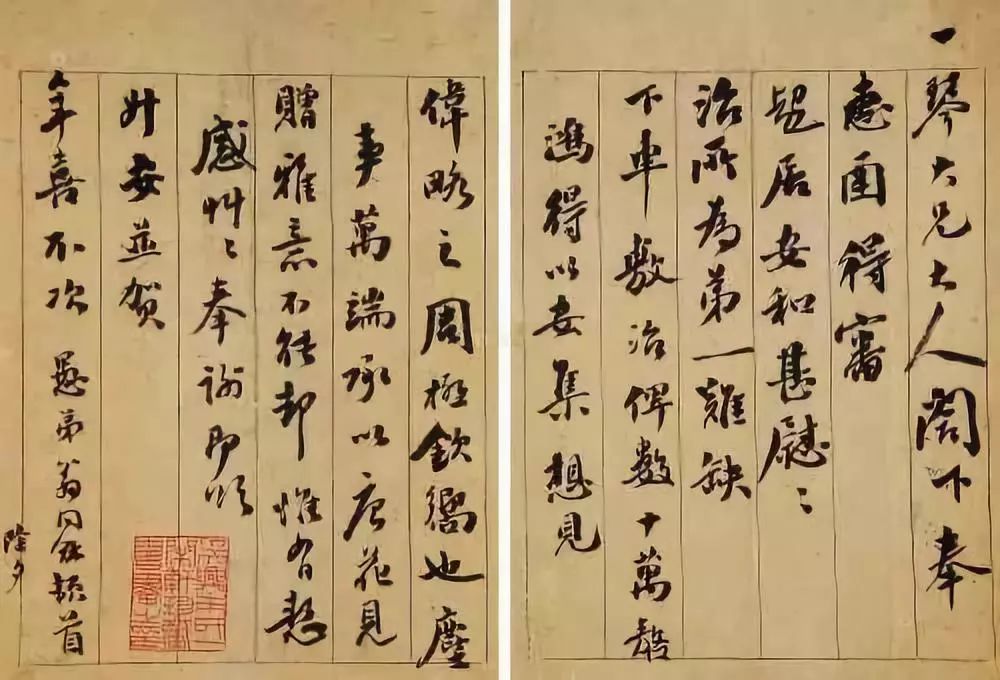 一琴大兄大人閣下奉
惠函得審
起居安和甚慰〻
治所為第一難缺
下車敷治俾數十萬嗸
鴻得以安集想見
偉略之周極欽嚮也塵
事萬端承以唐花見
贈雅意不能却惟有愁
感艸〻奉謝即頌
升安並賀
年喜不次 愚弟翁同龢頓首
除夕